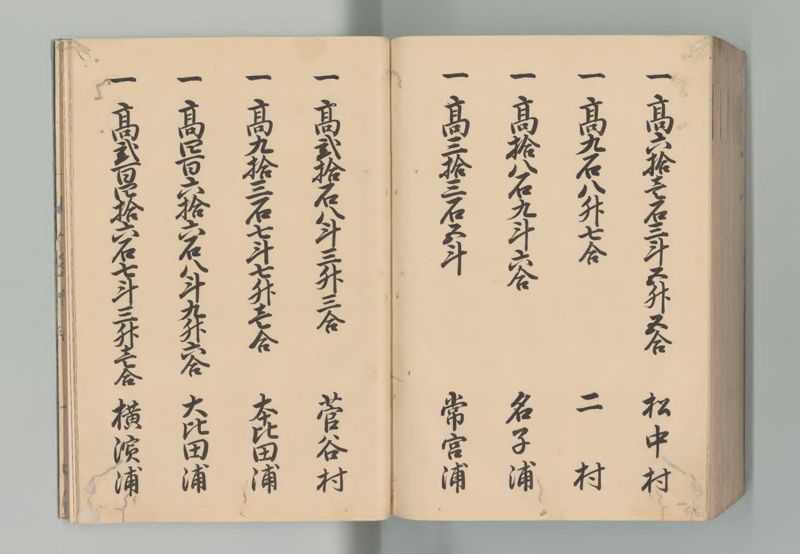 一 高六拾壱石三斗五升五合 松中村
一 高九石八升七合 二村
一 高拾八石九斗六合 名子浦
一 高三拾三石五斗 常宮浦
一 高弐拾石八斗三升三合 菅谷村
一 高九拾三石七斗七升壱合 本比田浦
一 高四百六拾六石八斗九升六合 大比田浦
一 高弐百四拾六石七斗三升壱合 横濱浦